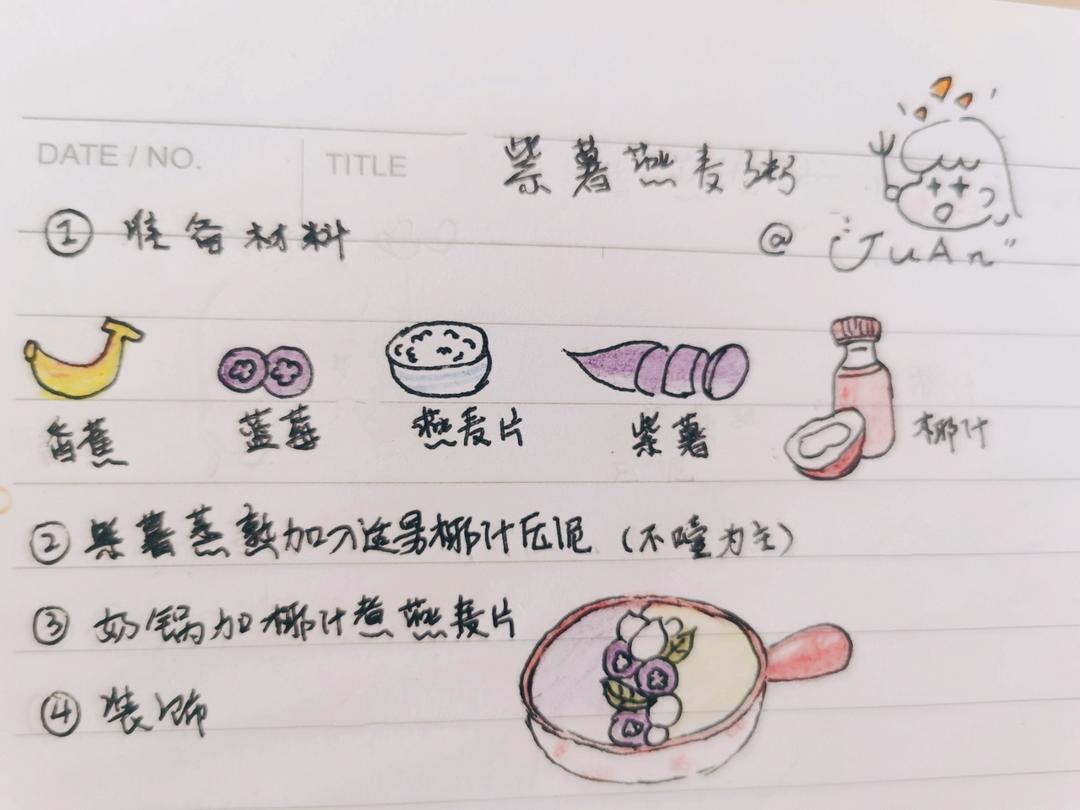 DATE / NO.
TITLE
紫薯燕麦粥
① 准备材料
@ "JuAn"
香蕉 蓝莓 燕麦片 紫薯 椰汁
② 紫薯蒸熟加入适量椰汁压泥(不噎为主)
③ 奶锅加椰汁煮燕麦片
④ 装饰